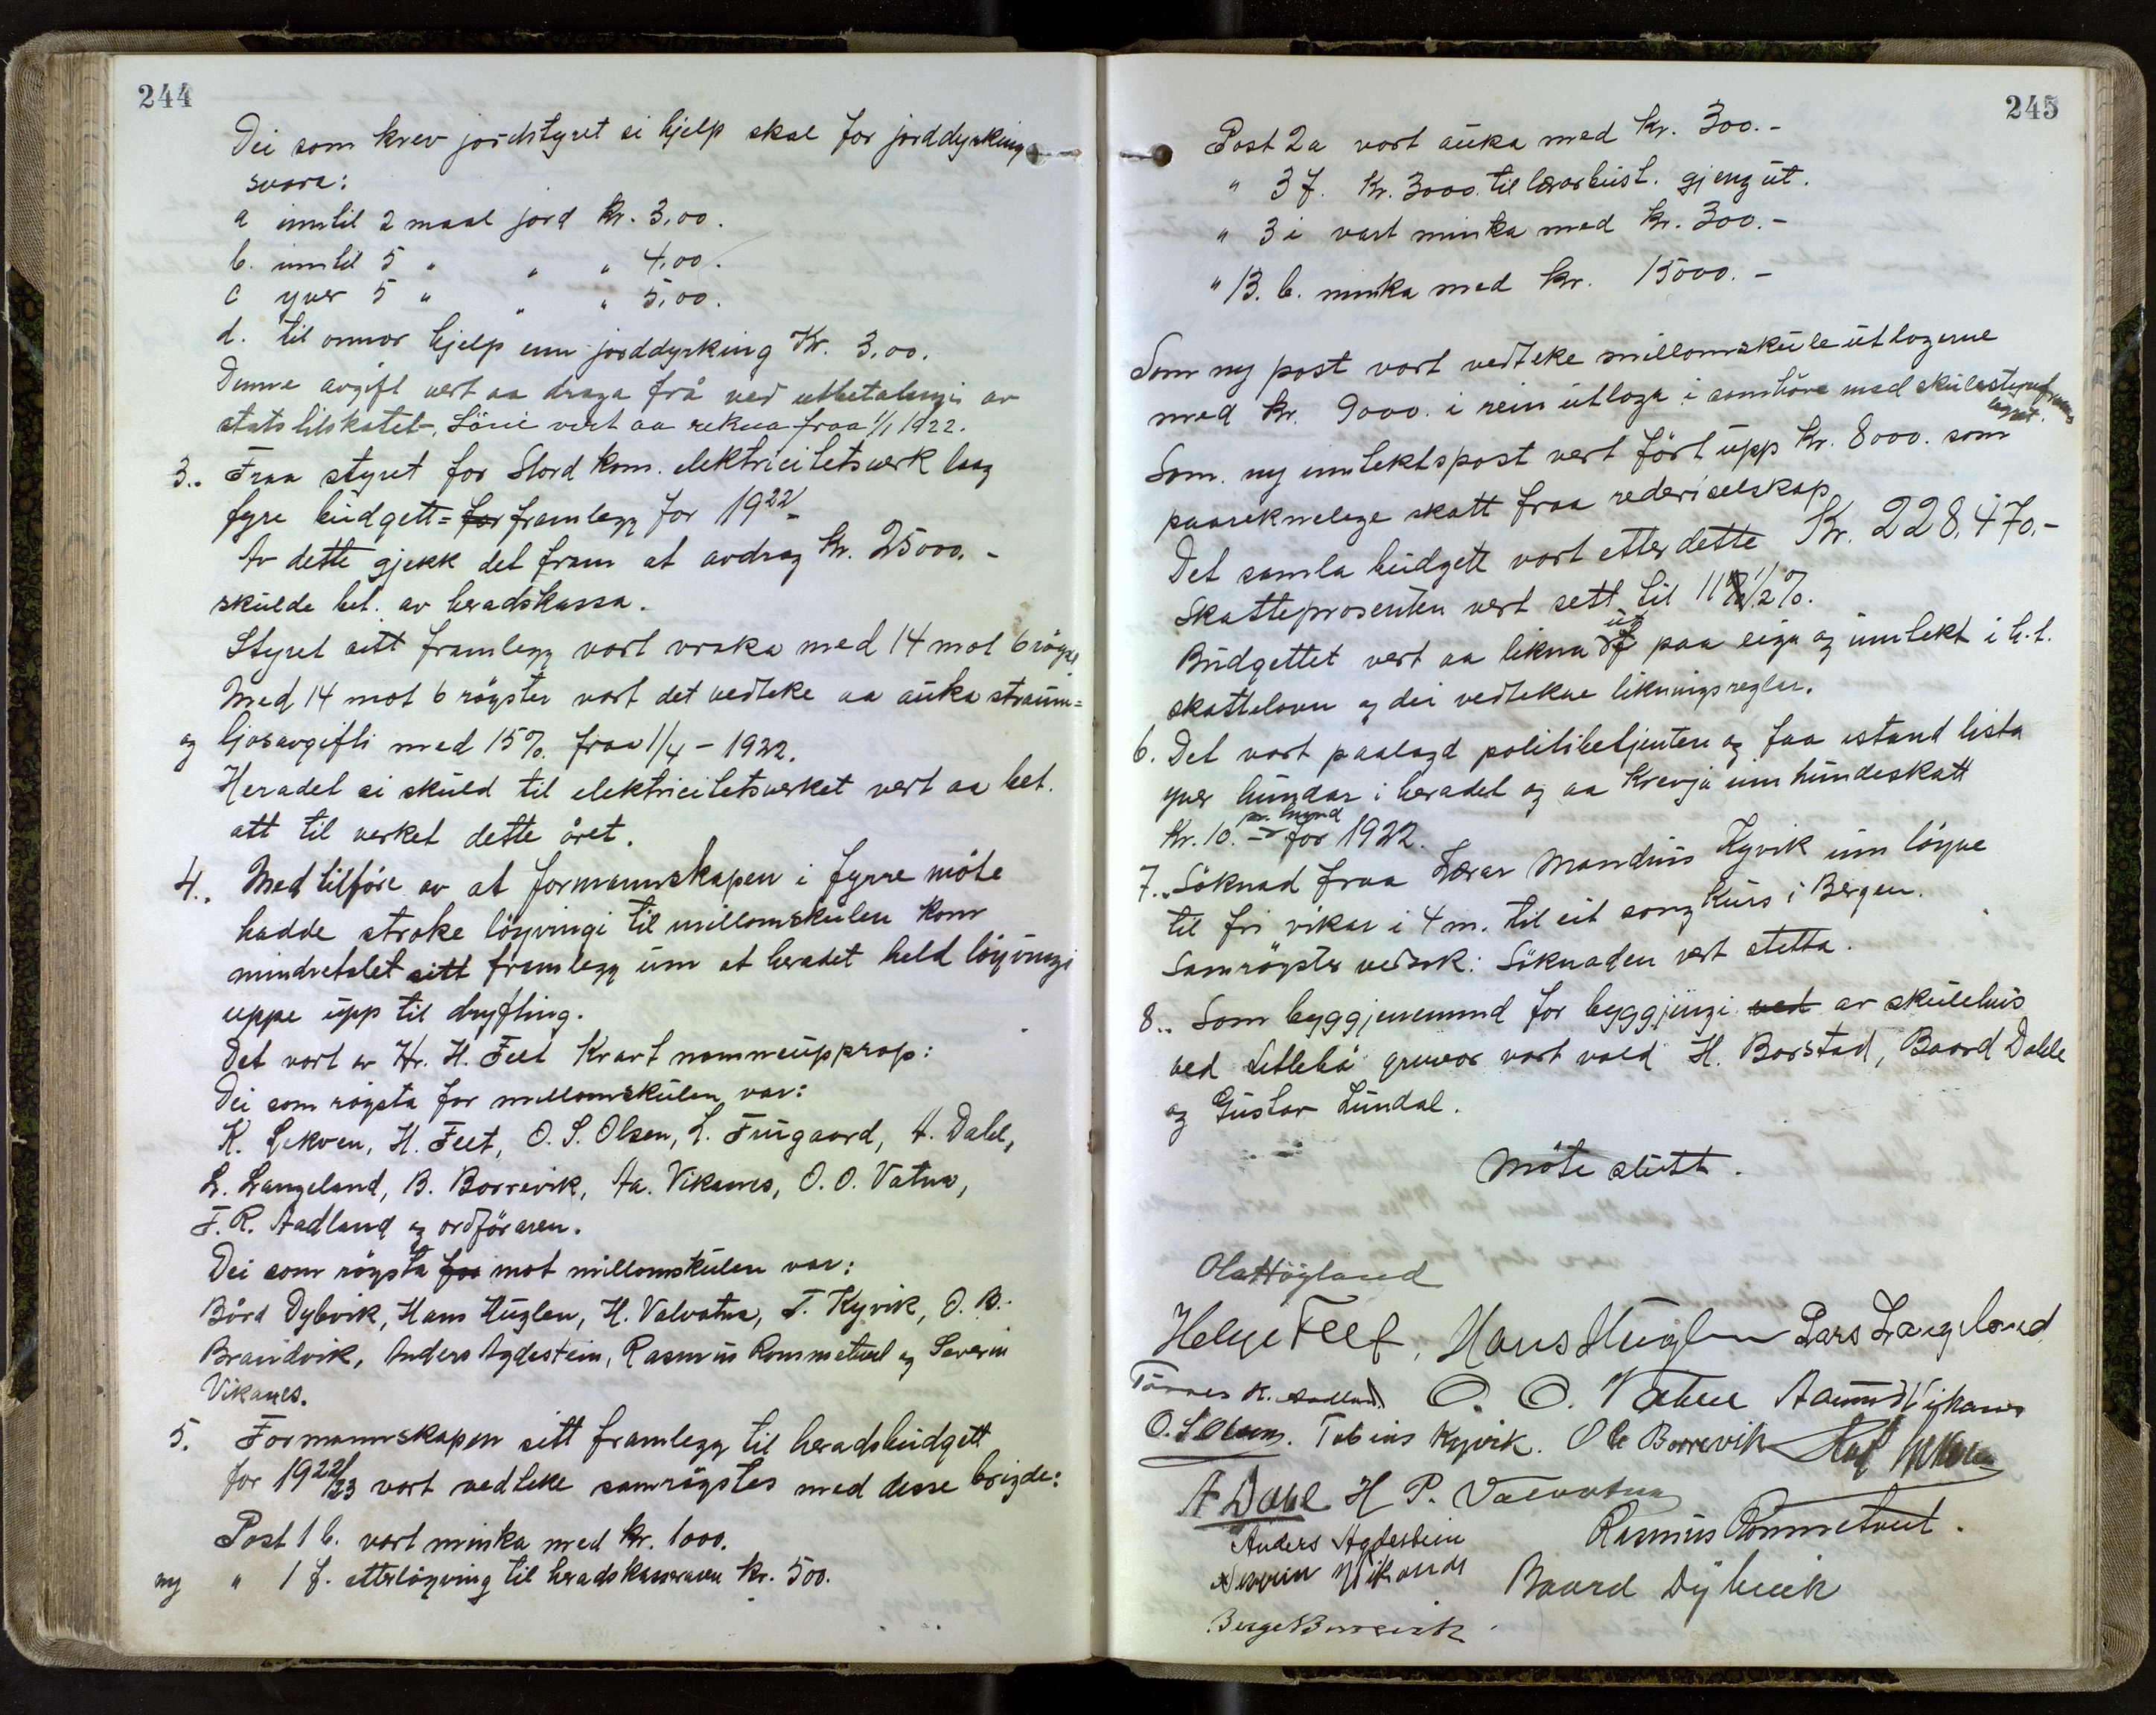 244
Dei som krev jordstyret si hjelp skal for jorddyrking
svara:
a inntil 2 maal jord Kr. 3,00.
b. inntil 5 " " " 4,00.
c yver 5 " " " 5,00.
d. til onnor hjelp enn jorddyrking Kr. 3,00.
Denne avgift vert aa draga frå ved utbetalingi av
statstilskotet. Löni vert aa rekna fraa 1/1 1922.
3.. Fraa styret for Stord kom. elektricitetsverk laag
fyre budgett= for framlegg for 1922
Av dette gjekk det fram at avdrag kr. 25000.-
skulde bet. av heradskassa.
Styret sitt framlegg vart vraka med 14 mot 6 röyst
Med 14 mot 6 röyster vart det vedteke aa auka straum=
og ljosavgifti med 15% fraa 1/4 - 1922.
Heradet si skuld til elektricitetsverket vert aa bet.
att til verket dette året.
4.. Med tilföre av at formannskapen i fyrre möte
hadde stroke löyvingi til millomskulen kom
mindretalet sitt framlegg um at heradet held löyvingi
uppe upp til dryfting.
Det vart av Hr. H. Feet kravt namneupprop:
Dei som röysta for millomskulen var:
K. Gjekoen, H. Feet, O. S. Olsen, L. Frugaard, A. Dahl,
L. Langeland, B. Borrevik, Aa. Vikanes, O. O. Vatna,
T. R. Aadland og ordföraren.
Dei som röysta for mot millomskulen var:
Bård Dybvik, Hans Huglen, H. Valvatna, T. Kyvik, O. B.
Brandvik, Anders Agdestein, Rasmus Rommetveit og Severin
Vikanes.
5. Formannskapen sitt framlegg til heradsbudgett
for 1922/23 vart vedteke samröystes med desse brigde:
Post 1 b. vart minka med kr. 1000.
ny " 1 f. etterlöyving til heradskasseraren kr. 500.
245
Post 2a vart auka med kr. 300.-
" 3 f. Kr. 3000. til lærarbust. gjeng ut.
" 3 i vart minka med kr. 300.-
" 13. b. minka med kr. 15000.-
Som ny post vart vedteke millomskule utlogerne
med kr. 9000. i rein utloga i samhöve med skulestyreframlegget.
Som ny inntektspost vert fört upp kr. 8000. som
paareknelege skatt fraa rederiselskap
Det samla budgett vart etter dette Kr. 228.470.-
Skatteprosenten vert sett til 11 1/2 %.
Budgettet vert aa likna ut paa eiga og inntekt i h.t.
skattelovn og dei vedtekne likningsreglar.
6. Det vart paalagd politibetjenten og faa istand lista
yver hundar i heradet og aa krevja inn hundeskatt
Kr. 10.- pr. hund for 1922.
7.. Söknad fraa Lærar Mandius Kyvik um löyve
til fri vikar i 4 m. til eit song kurs i Bergen.
Samröystes vedtok: Söknaden vert stetta.
8.. Som byggjenemnd for byggjingi ved av skulehus
ved Litlebö gruvor vart vald H. Borstad, Baard Dalle
og Gustav Lundal.
Möte slutt.
Ola Högland
Helge Feet, Hans Huglen Lars Langeland
Tönnes R. Aadland. O. O. Vatna Aamund Vikanes
O. S. Olsen. Tobias Kyvik. Ole Borrevik
A Dahl H P. Valvatna
Anders Agdestein Rasmus Rommetveit.
Severin Vikanes Baard Dybvik
Berge Borrevik